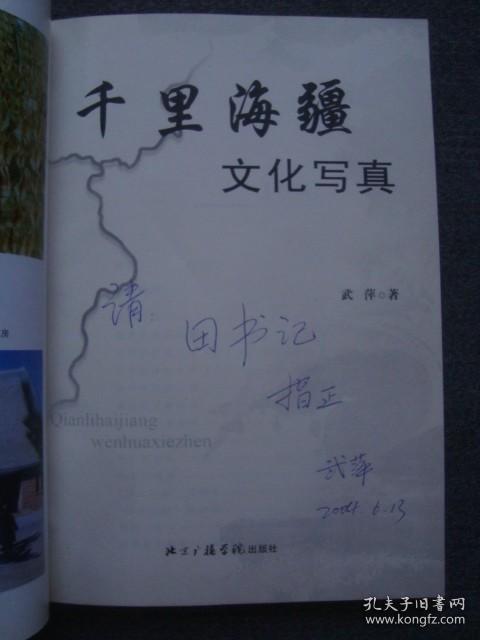 千里海疆
文化写真
武萍©著
请
田书记
指正
Qianlihaijiang
wenhuaxiezhen
武萍
2004.6.13
北京广播学院出版社
房
孔夫子旧书网
www.kongfz.com